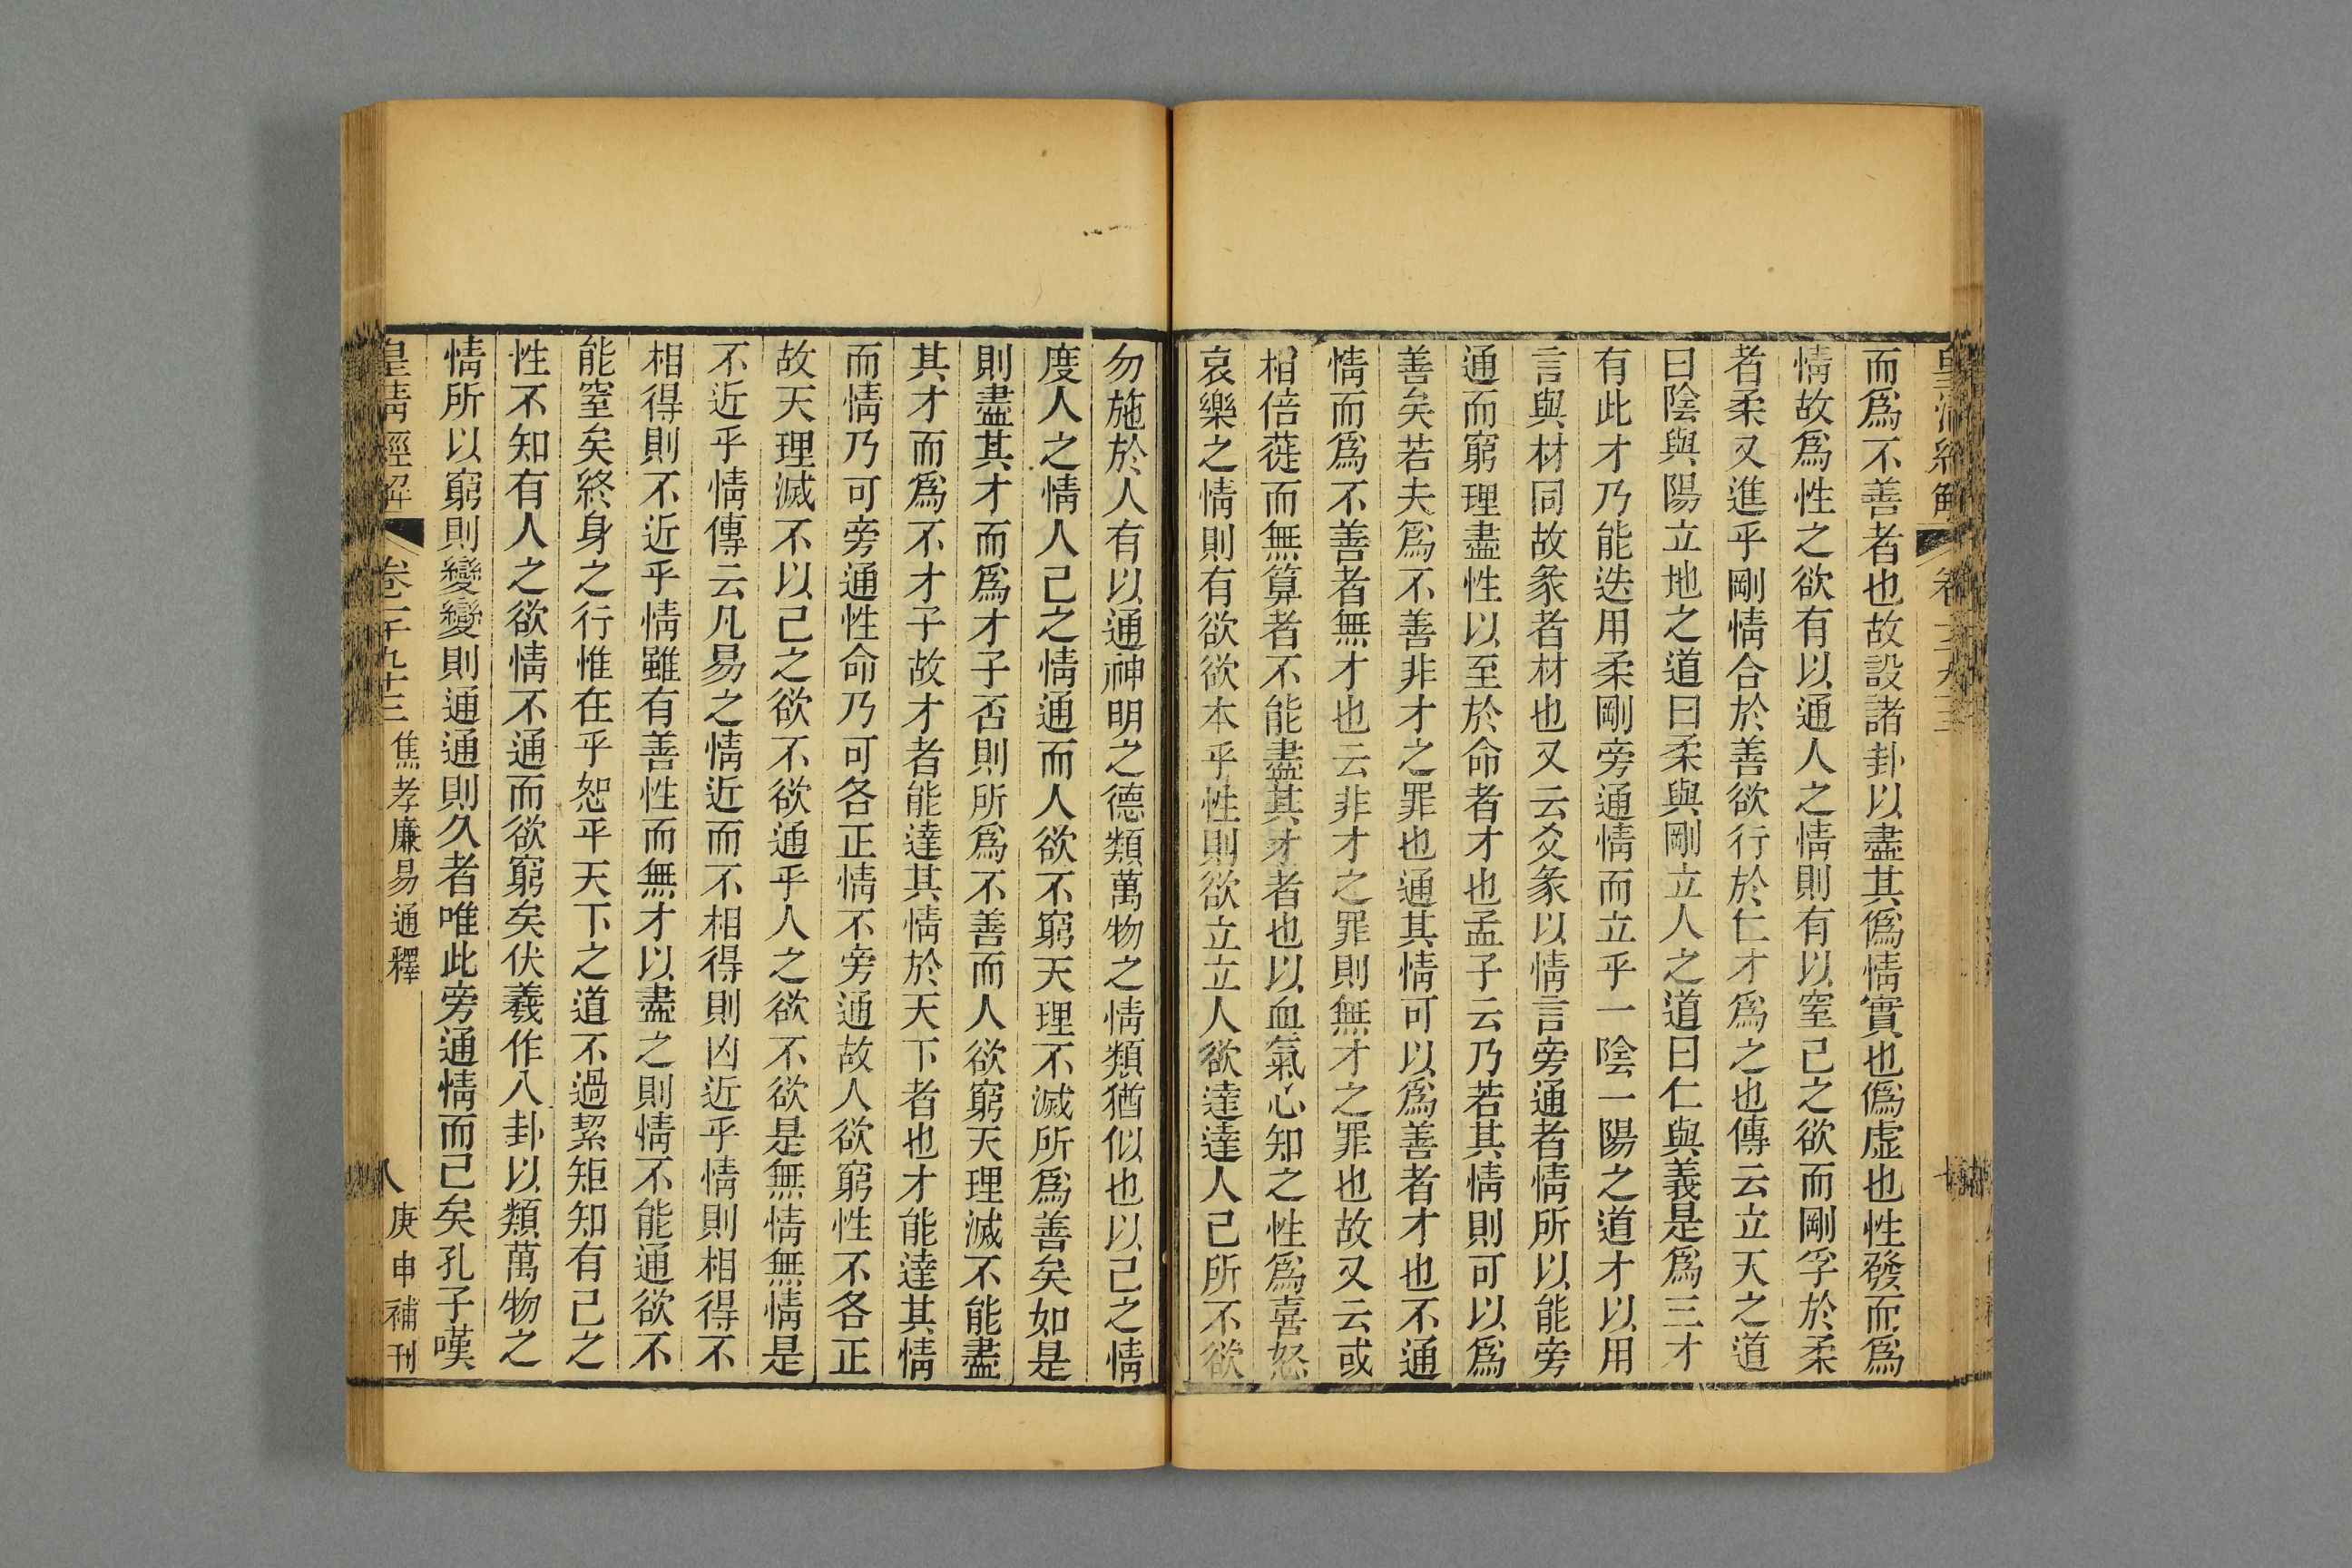 而爲不善者也故設諸卦以盡其僞情實也僞虛也性發而爲
情故爲性之欲有以通人之情則有以窒己之欲而剛孚於柔
者柔又進乎剛情合於善欲行於仁才爲之也傳云立天之道
曰陰與陽立地之道曰柔與剛立人之道曰仁與義是爲三才
有此才乃能迭用柔剛旁通情而立乎一陰一陽之道才以用
言與材同故彖者材也又云爻彖以情言旁通者情所以能旁
通而窮理盡性以至於命者才也孟子云乃若其情則可以爲
善矣若夫爲不善非才之罪也通其情可以爲善者才也不通
情而爲不善者無才也云非才之罪則無才之罪也故又云或
相倍蓰而無算者不能盡其才者也以血氣心知之性爲喜怒
哀樂之情則有欲欲本乎性則欲立立人欲達達人己所不欲
勿施於人有以通神明之德類萬物之情類猶似也以己之情
度人之情人己之情通而人欲不窮天理不滅所爲善矣如是
則盡其才而爲才子否則所爲不善而人欲窮天理滅不能盡
其才而爲不才子故才者能達其情於天下者也才能達其情
而情乃可旁通性命乃可各正情不旁通故人欲窮性不各正
故天理滅不以己之欲不欲通乎人之欲不欲是無情無情是
不近乎情傳云凡易之情近而不相得則凶近乎情則相得不
相得則不近乎情雖有善性而無才以盡之則情不能通欲不
能窒矣終身之行惟在乎恕平天下之道不過絜矩知有己之
性不知有人之欲情不通而欲窮矣伏羲作八卦以類萬物之
情所以窮則變變則通通則久者唯此旁通情而已矣孔子嘆
皇清經解 卷一千九十三 焦孝廉易通釋 八 庚申補刊